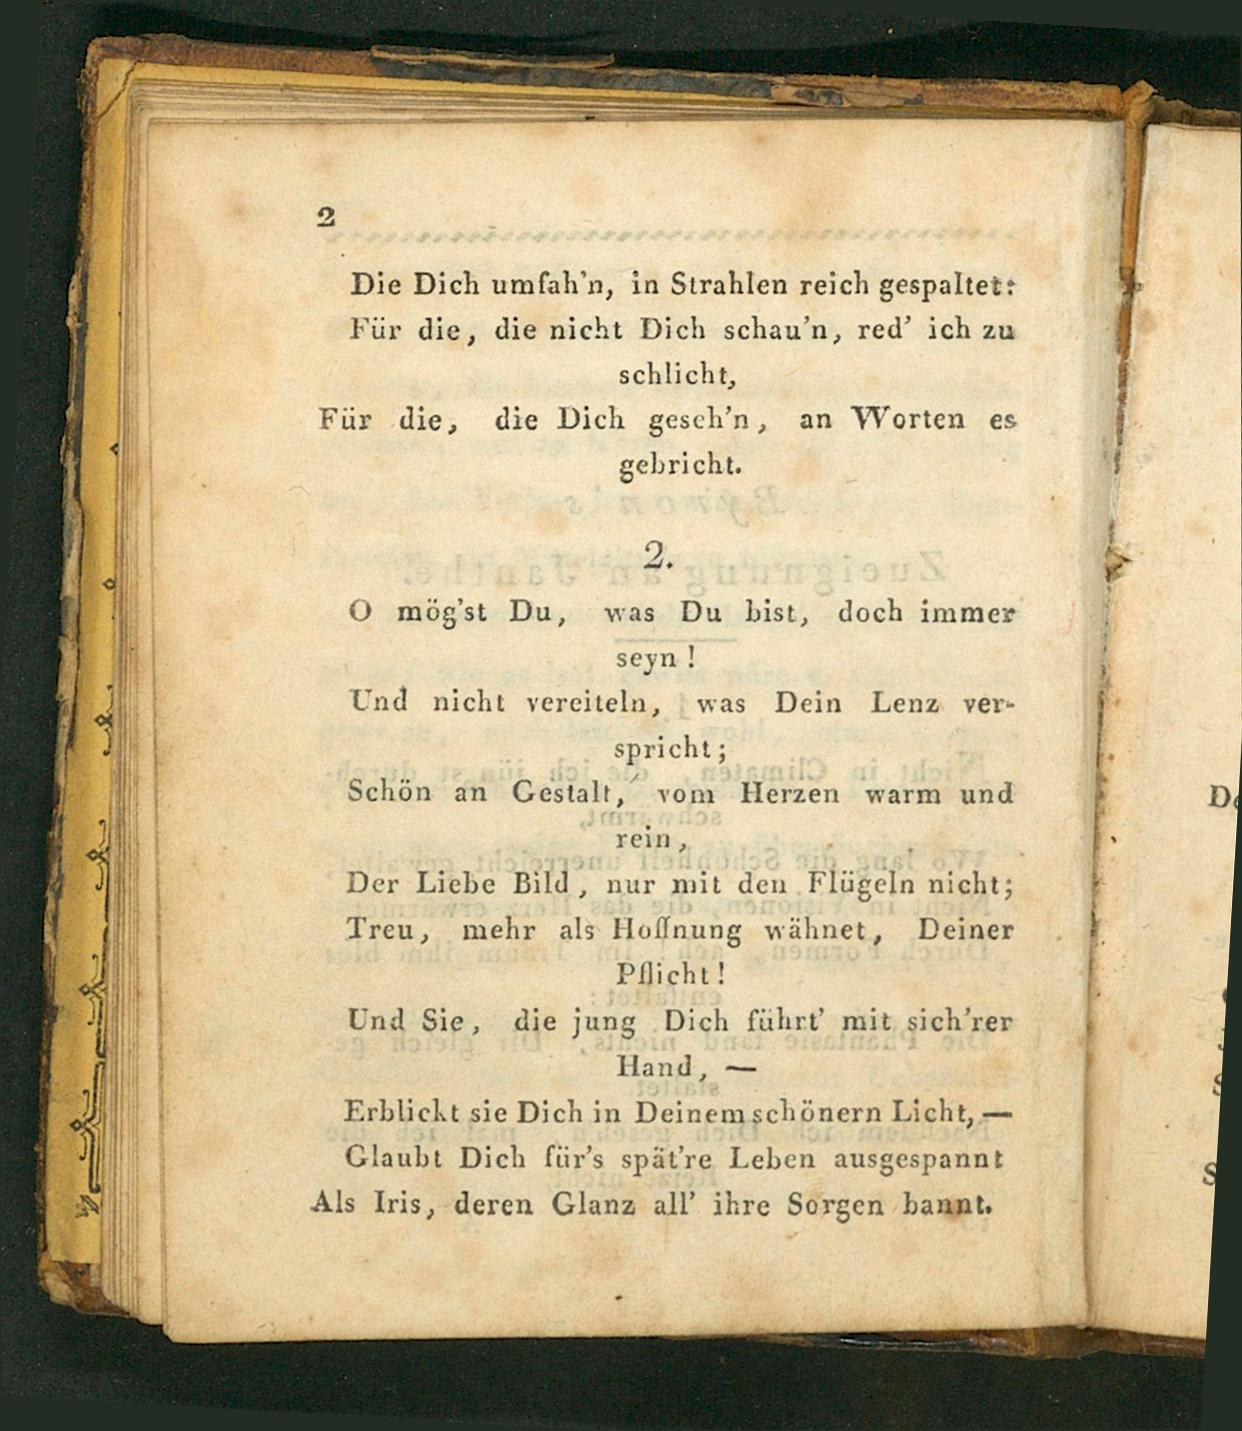 2
Die Dich umfah'n, in Strahlen reich gespaltet:
Für die, die nicht Dich schau'n, red' ich zu
schlicht,
Für die, die Dich geseh'n, an Worten es
gebricht.
2.
O mög'st Du, was Du bist, doch immer
seyn!
Und nicht vereiteln, was Dein Lenz ver-
spricht;
Schön an Gestalt, vom Herzen warm und
rein,
Der Liebe Bild, nur mit den Flügeln nicht;
Treu, mehr als Hoffnung wähnet, Deiner
Pflicht!
Und Sie, die jung Dich führt' mit sich'rer
Hand, —
Erblickt sie Dich in Deinem schönern Licht, —
Glaubt Dich für's spät're Leben ausgespannt
Als Iris, deren Glanz all' ihre Sorgen bannt.